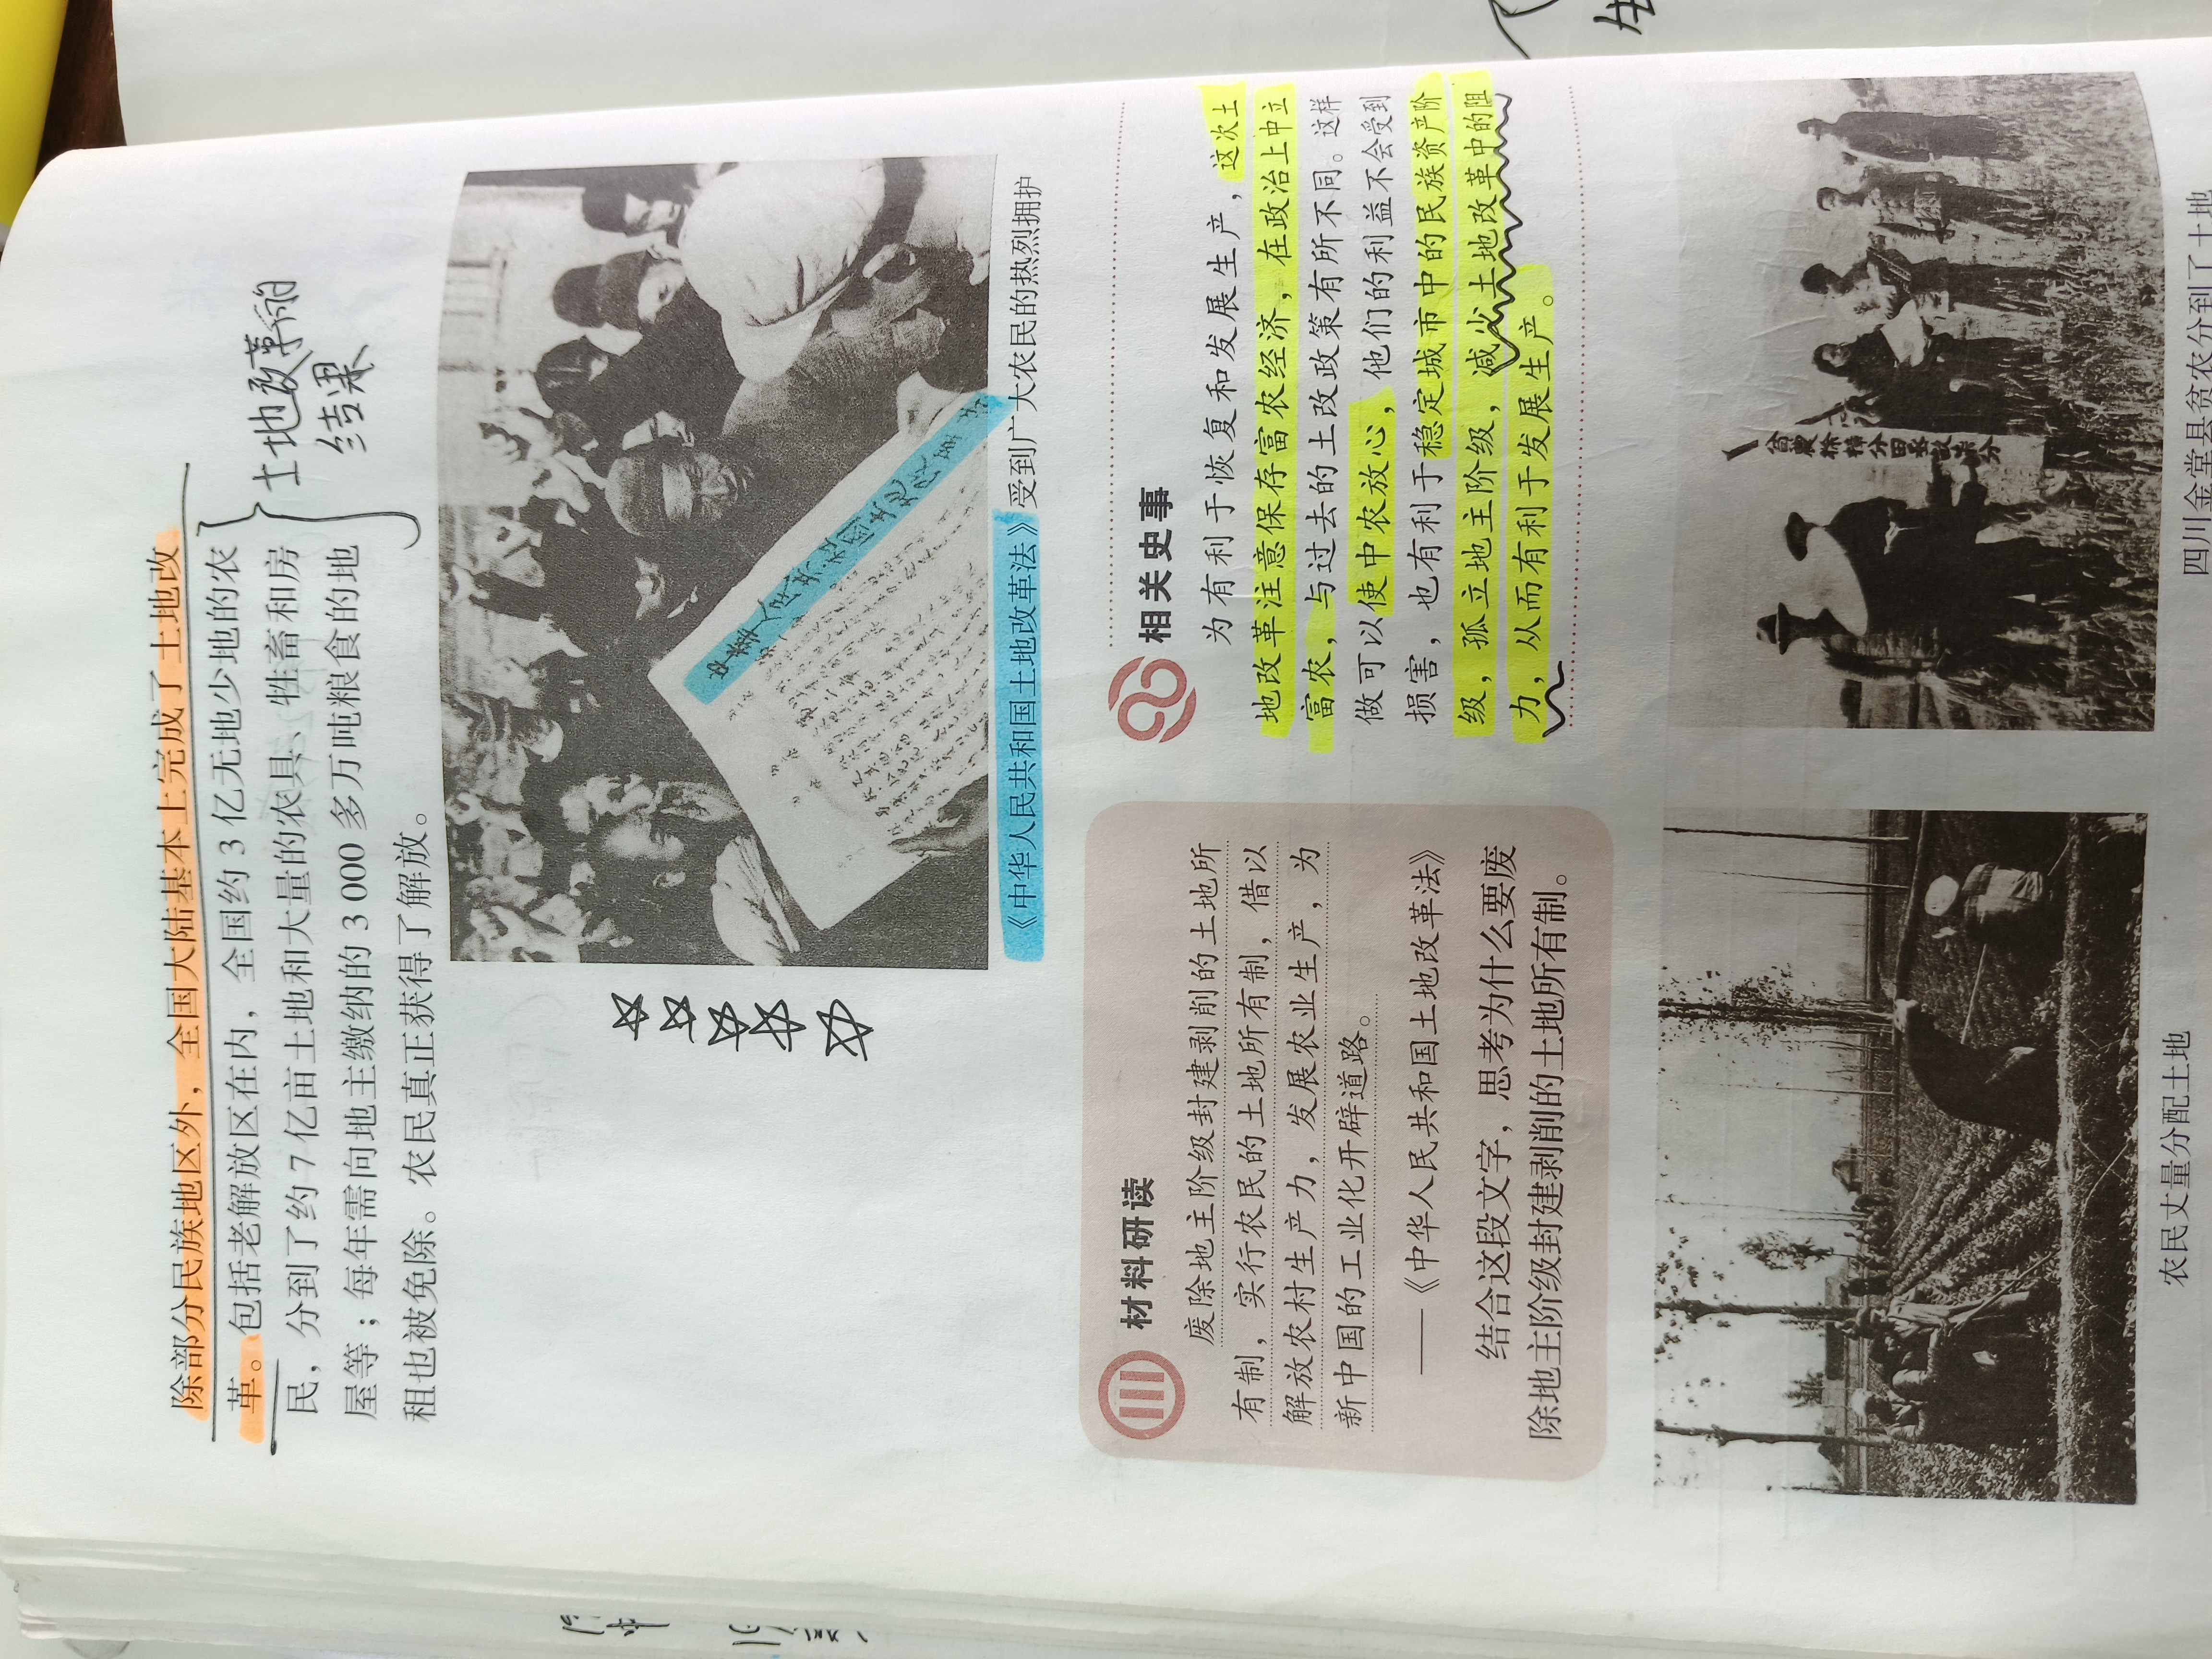 除部分民族地区外，全国大陆基本上完成了土地改
革。包括老解放区在内，全国约3亿无地少地的农
民，分到了约7亿亩土地和大量的农具、牲畜和房
屋等；每年需向地主缴纳的3 000多万吨粮食的地
租也被免除。农民真正获得了解放。
土地改革的
结果
《中华人民共和国土地改革法》受到广大农民的热烈拥护
材料研读
废除地主阶级封建剥削的土地所
有制，实行农民的土地所有制，借以
解放农村生产力，发展农业生产，为
新中国的工业化开辟道路。
——《中华人民共和国土地改革法》
结合这段文字，思考为什么要废
除地主阶级封建剥削的土地所有制。
相关史事
为有利于恢复和发展生产，这次土
地改革注意保存富农经济，在政治上中立
富农，与过去的土改政策有所不同。这样
做可以使中农放心，他们的利益不会受到
损害，也有利于稳定城市中的民族资产阶
级，孤立地主阶级，减少土地改革中的阻
力，从而有利于发展生产。
农民丈量分配土地
四川金堂县贫农分到了土地